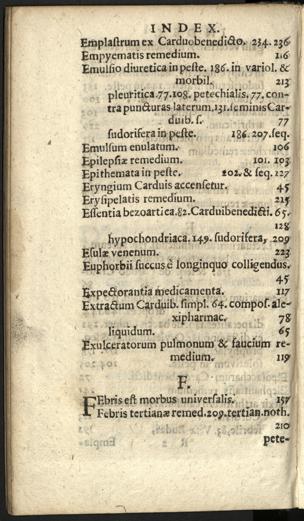 INDEX.
Emplastrum ex Carduobenedicto. 234. 236
Empyematis remedium. 116
Emulsio diuretica in peste. 186. in variol. &
morbil. 213
pleuritica.77.108. petechialis.77. con-
tra puncturas laterum.131. seminis Car-
duib. s. 77
sudorifera in peste. 186. 207. seq.
Emulsum enulatum. 106
Epilepsiæ remedium. 101. 103
Epithemata in peste. 202. & seq. 127
Eryngium Carduis accensetur. 45
Erysipelatis remedium. 215
Essentia bezoartica.82. Carduibenedicti. 65.
128
hypochondriaca. 149. sudorifera, 209
Esulæ venenum. 223
Euphorbii succus è longinquo colligendus.
45
Expectorantia medicamenta. 117
Extractum Carduib. simpl. 64. compos. ale-
xipharmac. 78
liquidum. 65
Exulceratorum pulmonum & faucium re-
medium. 119
F.
FEbris est morbus universalis. 157
Febris tertianæ remed. 209. tertian. noth.
210
pete-